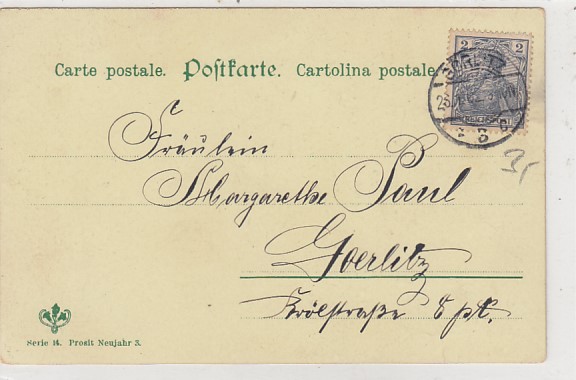 Carte postale. Postkarte. Cartolina postale.
2 2
GÖRLITZ
3
Fräulein
Margarethe Paul
Goerlitz
8 pt.
35
Serie 14. Prosit Neujahr 3.